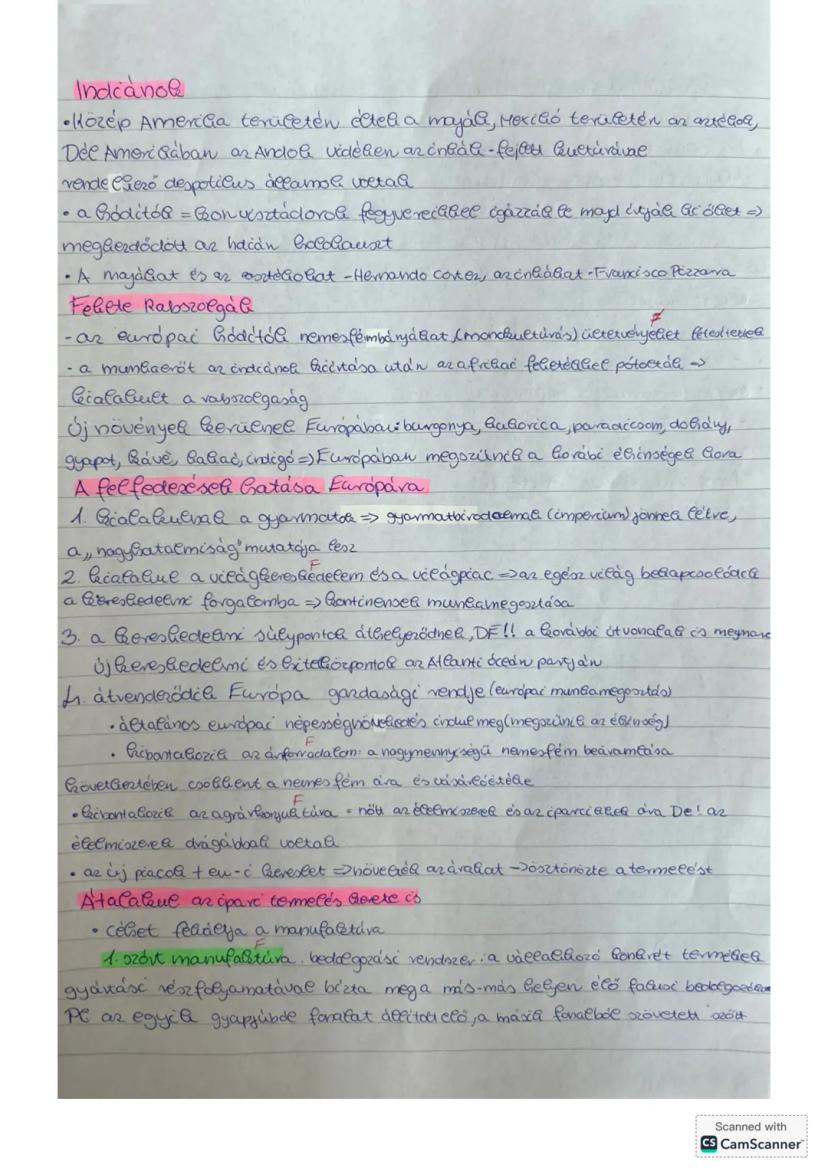 Indiánok
•Közép Amerika területén éltek a maják, Mexikó területén az aztékok,
Dél Amerikában az Andok vidékén az inkák - fejlett kultúrával
rendelkező despotikus államok voltak
• a hódítók = konkvisztádorok fegyvereikkel igázzák le majd írtják ki őket =>
megkezdődött az indián holokauszt
• A majákat és az aztékokat - Hernando Cortez, az inkákat - Francisco Pizzarra
Fekete Rabszolgák
- az európai hódítók nemesfémbányákat (monokultúrás) ültetvényeket létesítettek
- a munkaerőt az indiánok kiirtása után az afrikai feketékkel pótolták =>
kialakult a rabszolgaság
Új növények kerülnek Európába: burgonya, kukorica, paradicsom, dohány,
gyapot, kávé, kakaó, indigó => Európában megszűnik a korábi éhínségek kora
A felfedezések hatása Európára
1. kialakulnak a gyarmatok => gyarmatbirodalmak (impérium) jönnek létre,
a „nagyhatalmiság" mutatója lesz
F
2. kialakul a világkereskedelem és a világpiac => az egész világ bekapcsolódik
a kereskedelmi forgalomba => kontinensek munkamegosztása
3. a kereskedelmi súlypontok áthelyeződnek, DE!! a korábbi útvonalak is megmarad
új kereskedelmi és hitelközpontok az Atlanti óceán partján
4. átrendeződik Európa gazdasági rendje (európai munkamegosztás)
• általános európai népességnövekedés indul meg (megszűnik az éhínség)
F
• kibontakozik az árforradalom: a nagymennyiségű nemesfém beáramlása
következtében csökkent a nemes fém ára és vásárlóértéke
F
• kibontakozik az agrárkonjuktúra • nőtt az élelmiszerek és az iparcikkek ára De! az
élelmiszerek drágábbak voltak
• az új piacok + eu-i kereslet => növelték az árakat -> ösztönözte a termelést
Átalakul az ipari termelés kerete is
• céhet felváltja a manufaktúra
F
1. szórt manufaktúra: bedolgozási rendszer: a vállalkozó konkrét termékek
gyártási részfolyamatával bízta meg a más-más helyen élő falusi bedolgozókat
Pl az egyik gyapjúból fonalat állított elő, a másik fonalból szövetett szőtt
Scanned with
CS CamScanner